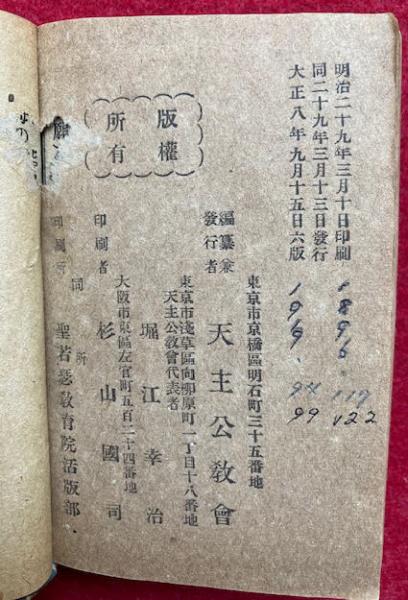 明治二十九年三月十日印刷
同二十九年三月十三日發行
大正八年九月十五日六版
1896.
1919.
94
99
117
122
版權
所有
編纂兼
發行者
東京市京橋區明石町三十五番地
天主公敎會
東京市淺草區向柳原町一丁目十八番地
天主公敎會代表者
堀江幸治
大阪市東區左官町五百二十四番地
印刷者
杉山國司
印刷所
同所
聖若瑟敎育院活版部